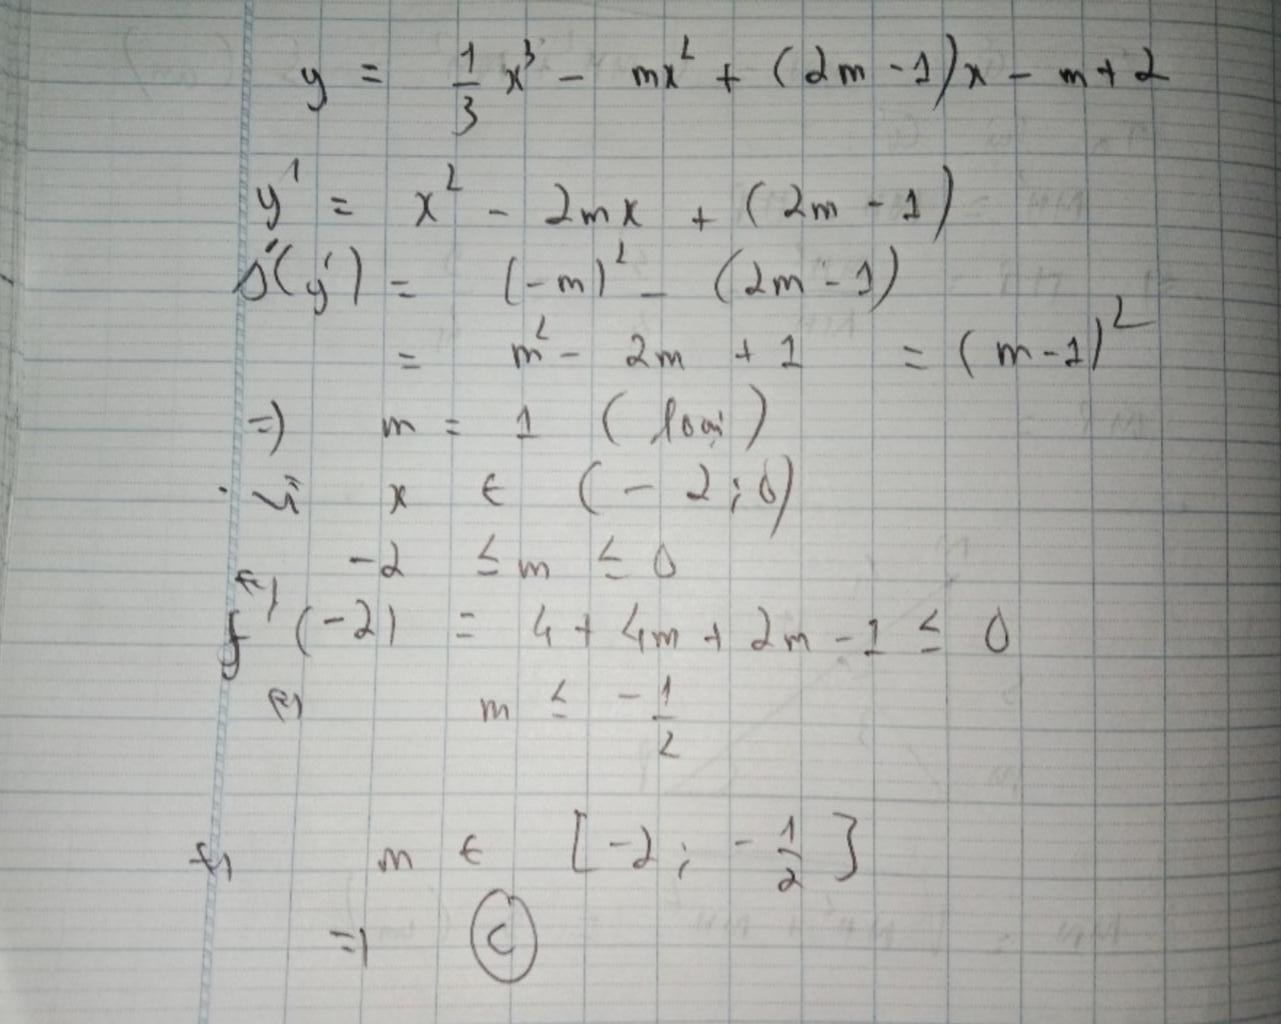 y = 1/3 x³ - mx² + (2m - 1)x - m + 2
y' = x² - 2mx + (2m - 1)
Δ'(y') = (-m)² - (2m - 1)
= m² - 2m + 1 = (m - 1)²
=) m = 1 (loại)
Vì x ∈ (- 2 ; 0)
-2 ≤ m ≤ 0
f'(-2) = 4 + 4m + 2m - 1 ≤ 0
m ≤ - 1/2
m ∈ [-2 ; - 1/2]
=) C